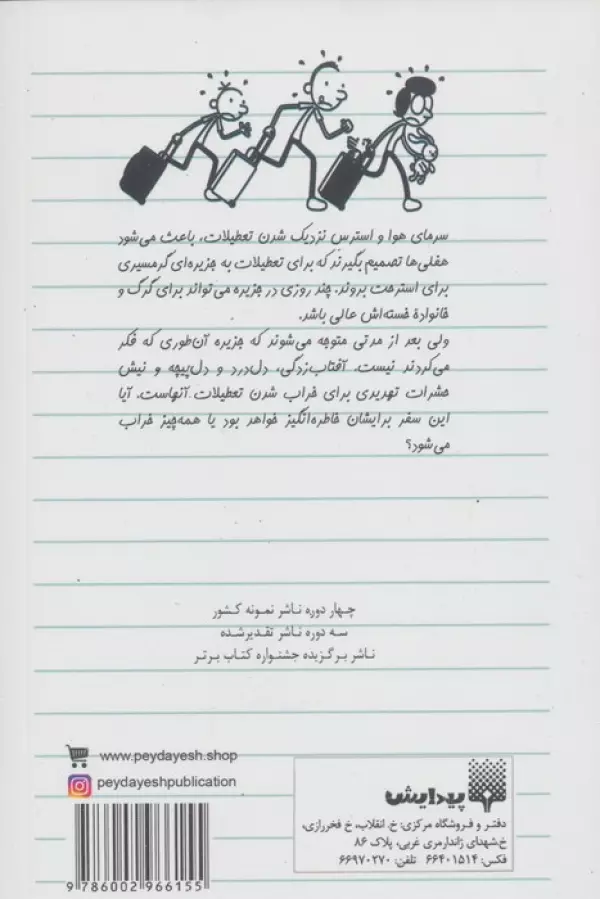 سرمای هوا و استرس نزدیک شدن تعطیلات، باعث می‌شود
هفلی‌ها تصمیم بگیرند که برای تعطیلات به جزیره‌ای گرمسیری
برای استراحت بروند. چند روزی در جزیره می‌تواند برای گرگ و
خانوادۀ خسته‌اش عالی باشد.
ولی بعد از مدتی متوجه می‌شوند که جزیره آن‌طوری که فکر
می‌کردند نیست. آفتاب‌زدگی، دل‌درد و دل‌پیچه و نیش
حشرات تهدیدی برای خراب شدن تعطیلات آنهاست. آیا
این سفر برایشان خاطره‌انگیز خواهد بود یا همه‌چیز خراب
می‌شود؟
چهار دوره ناشر نمونه کشور
سه دوره ناشر تقدیرشده
ناشر برگزیده جشنواره کتاب برتر
www.peydayesh.shop
peydayeshpublication
9 786002 966155
پیدایش
دفتر و فروشگاه مرکزی: خ. انقلاب، خ فخررازی،
خ‌شهدای ژاندارمری غربی، پلاک ۸۶
فکس: ۶۶۴۰۱۵۱۴ تلفن: ۶۶۹۷۰۲۷۰